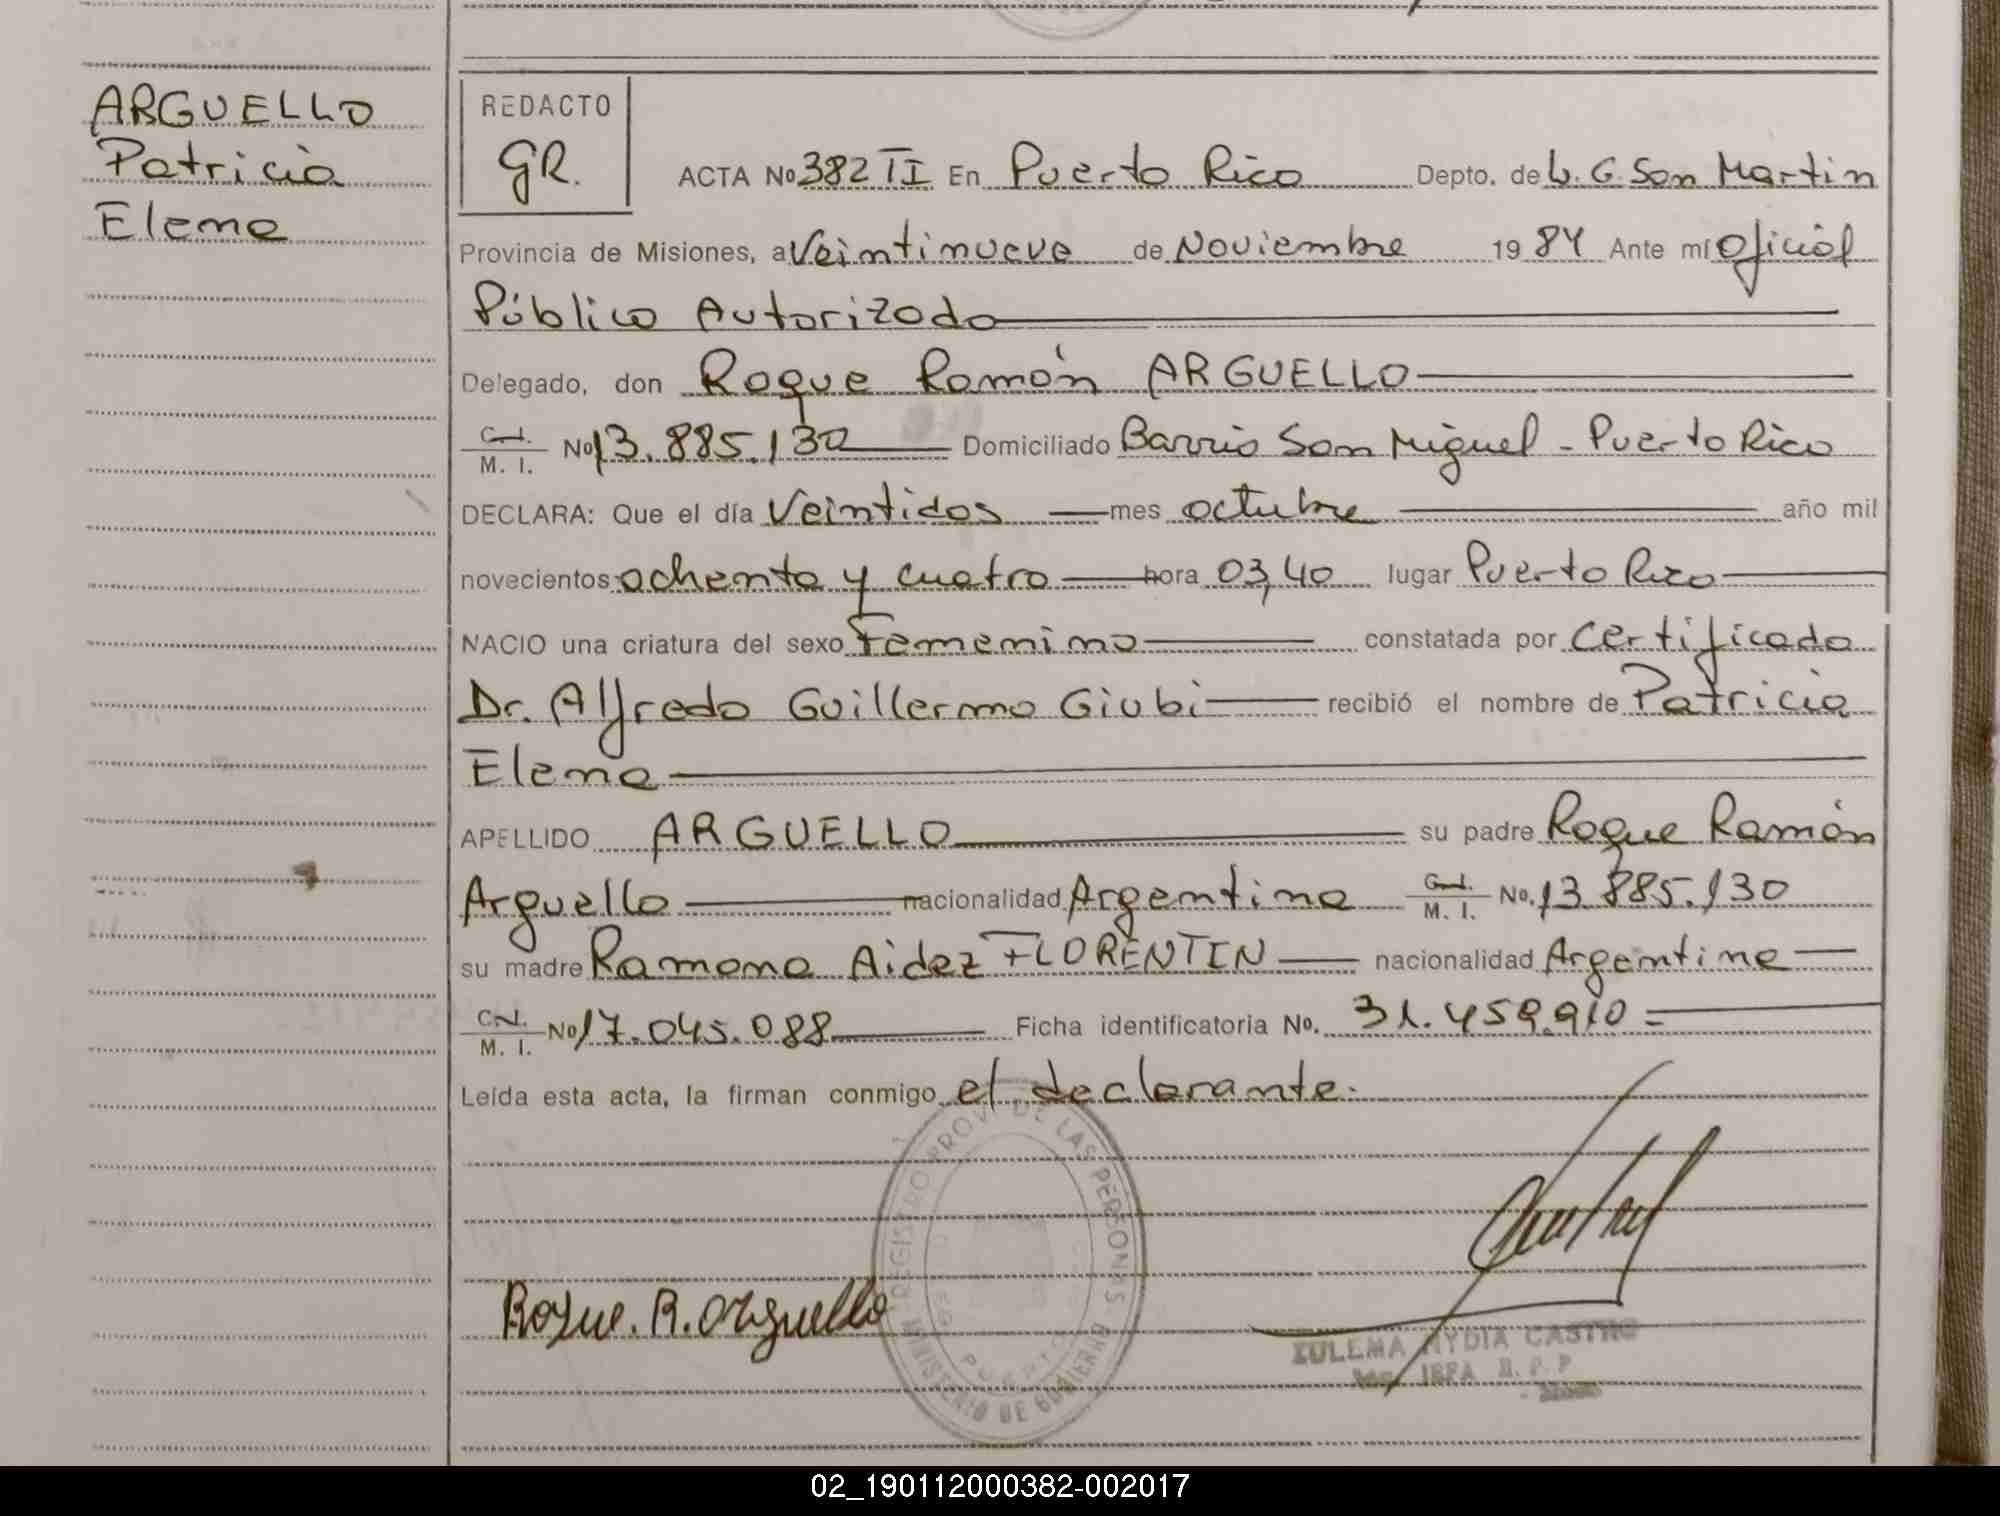 ARGUELLO
Patricia
Elena
REDACTO
GR.
ACTA No 382 TI En Puerto Rico Depto. de L. G. San Martin
Provincia de Misiones, a Veintinueve de Noviembre 1984 Ante mí Oficial
Público Autorizado
Delegado, don Roque Ramón ARGUELLO
C.I. M. I. No 13.885.130 Domiciliado Barrio San Miguel - Puerto Rico
DECLARA: Que el día Veintidos mes octubre año mil
novecientos ochenta y cuatro hora 03,40 lugar Puerto Rico
NACIO una criatura del sexo Femenino constatada por Certificado
Dr. Alfredo Guillermo Giubi recibió el nombre de Patricia
Elena
APELLIDO ARGUELLO su padre Roque Ramón
Arguello nacionalidad Argentina C.I. M. I. No. 13.885.130
su madre Ramona Aidez FLORENTIN nacionalidad Argentina
C.I. M. I. No 17.045.088 Ficha identificatoria No. 31.459.910=
Leída esta acta, la firman conmigo el declarante.
REGISTRO PROV. DE LAS PERSONAS
MINISTERIO DE GOBIERNO
PUERTO
Roque. R. Arguello
ZULEMA NYDIA CASTRO
R. P. P
02_190112000382-002017